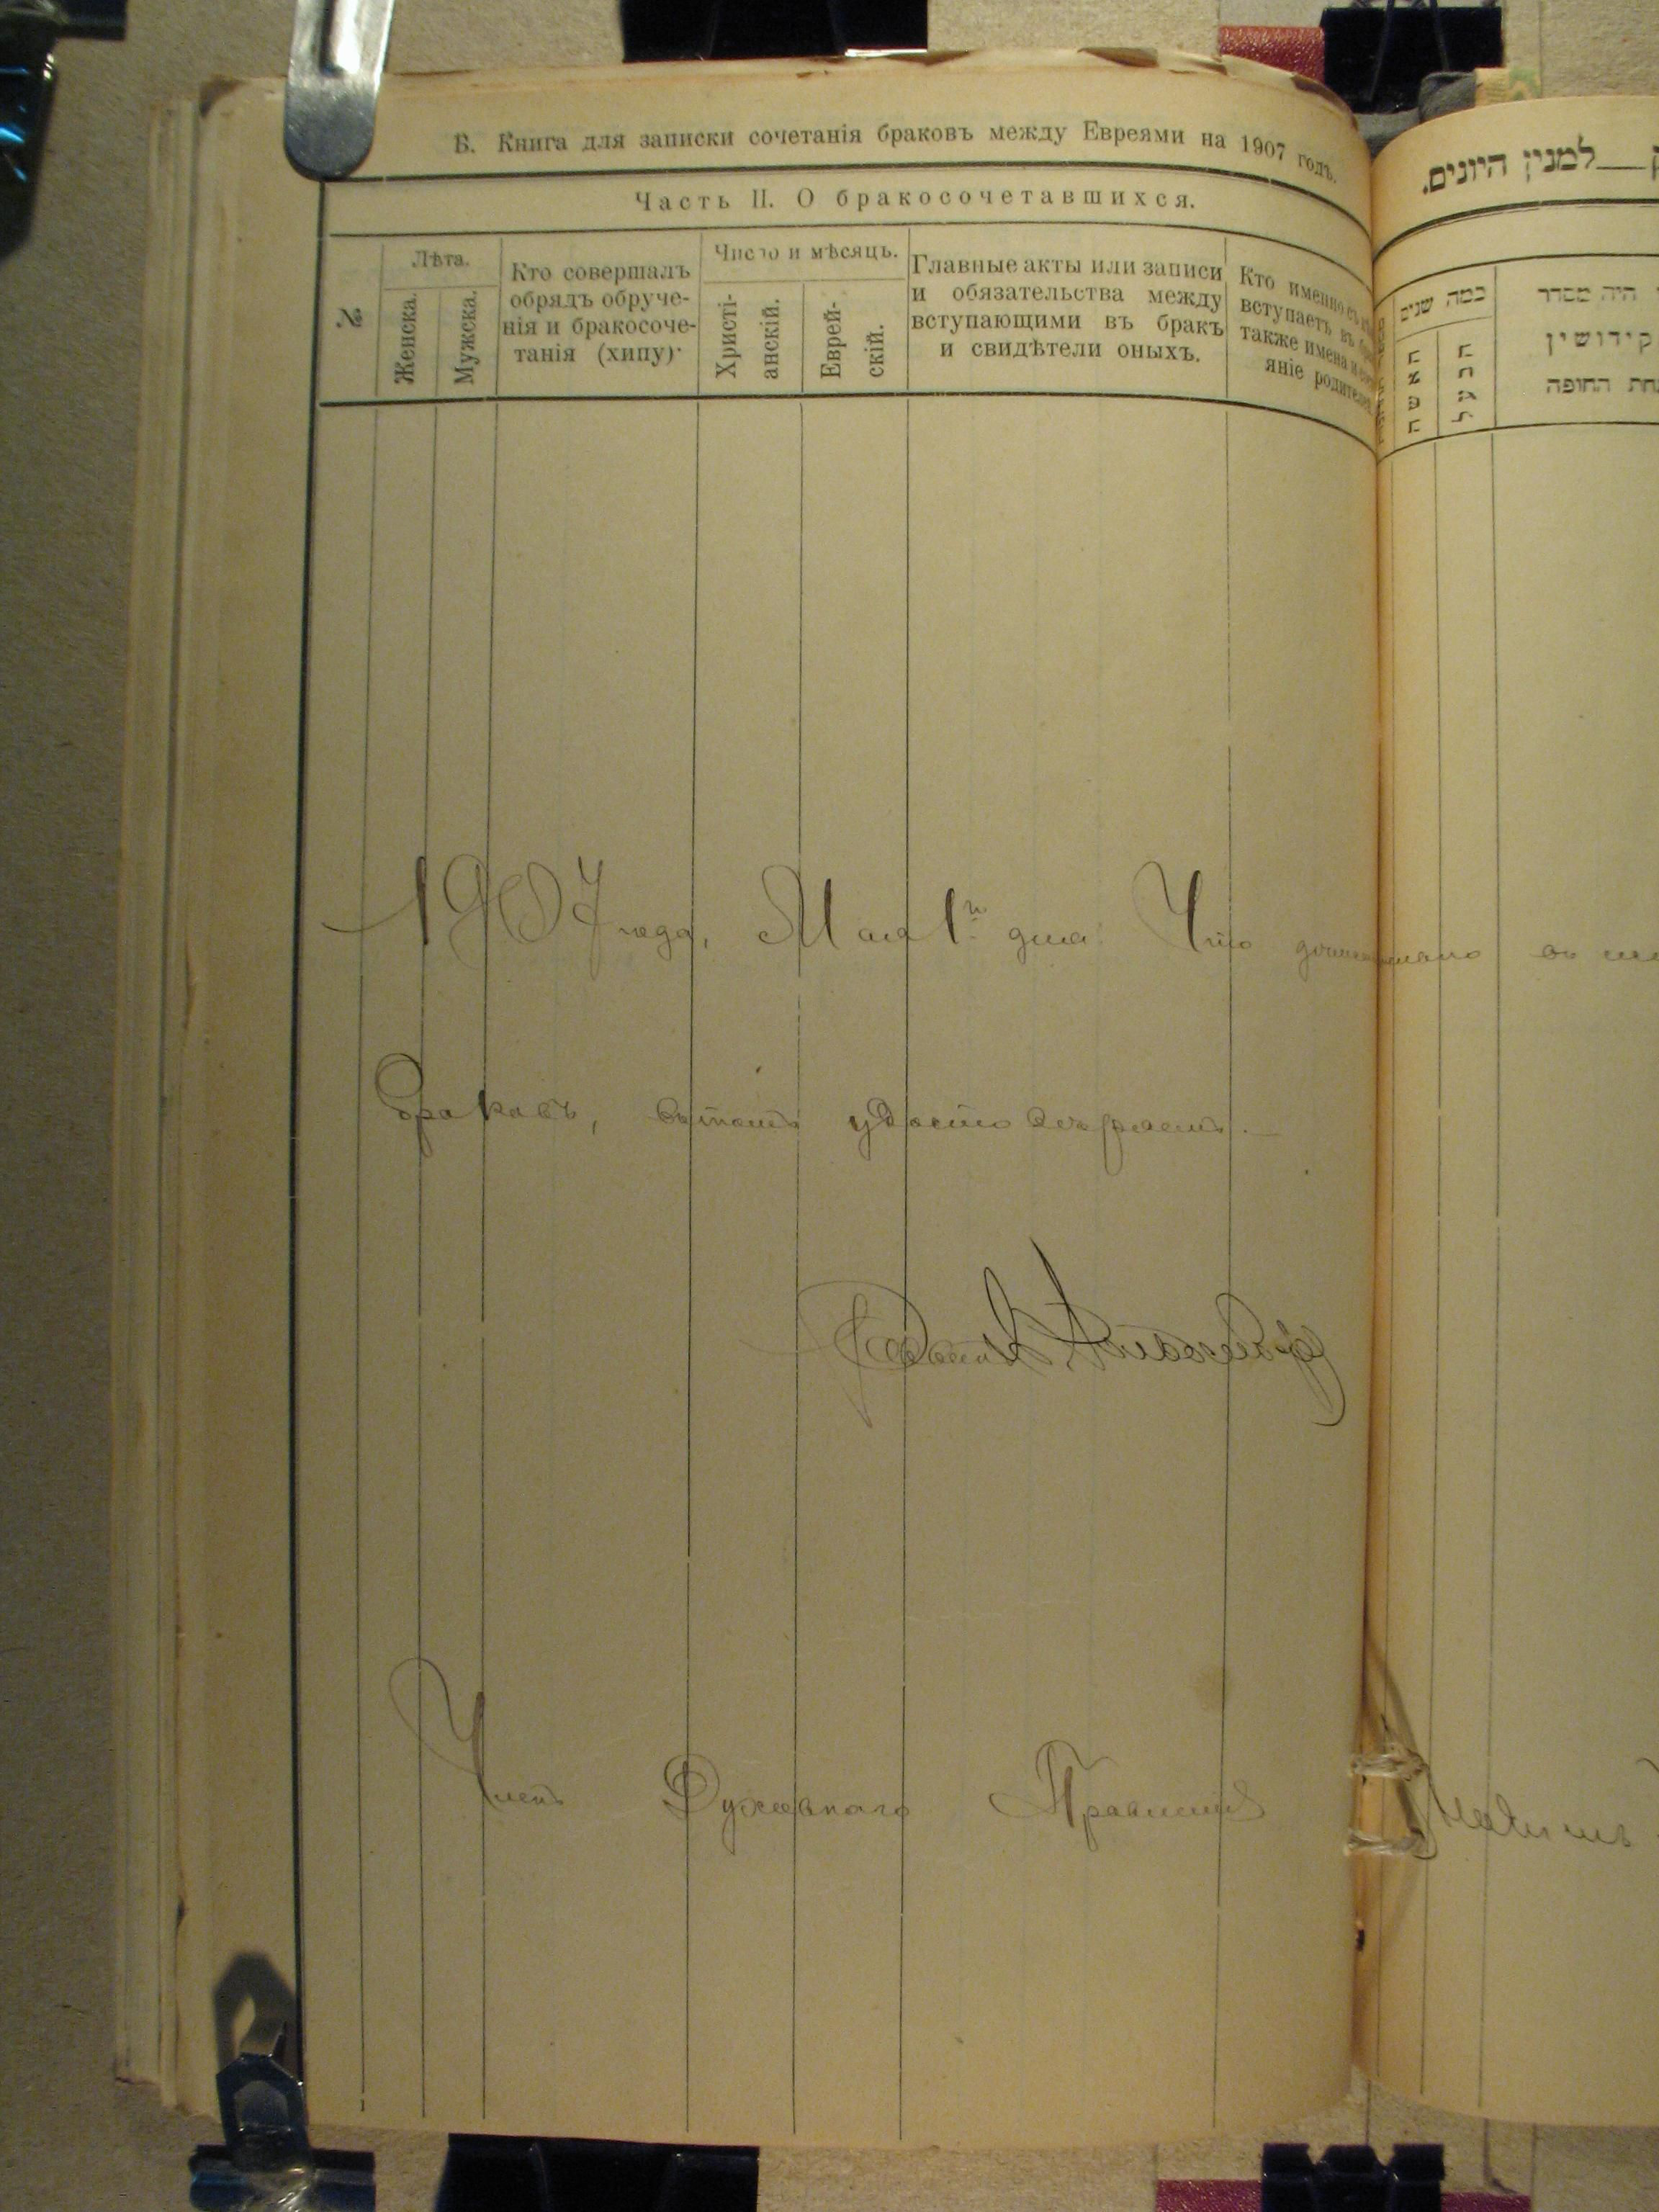 Б. Книга для записки сочетанія браковъ между Евреями на 1907 годъ.
Часть II. О бракосочетавшихся.
№
Лѣта.
Женска.
Мужска.
Кто совершалъ
обрядъ обруче-
нія и бракосоче-
танія (хипу)·
Число и мѣсяцъ.
Христі-
анскій.
Еврей-
скій.
Главные акты или записи
и обязательства между
вступающими въ бракъ
и свидѣтели оныхъ.
Кто именно съ
вступаетъ въ
также имена и
яніе родителей
1907 года, Мая 1го дня. Что
браковъ, въ томъ удостовѣряемъ.
Раввинъ
Членъ Духовнаго Правленія
למנין היונים.
כמה שנים
האשה
הבעל
היה מסדר
קידושין
החופה